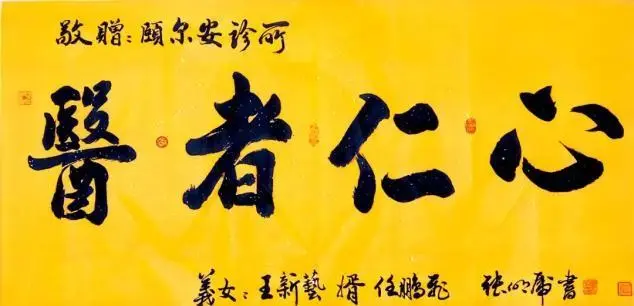 敬贈：頤尔安診所
醫者仁心
義女：王新藝 婿 任鵬飛 張
書